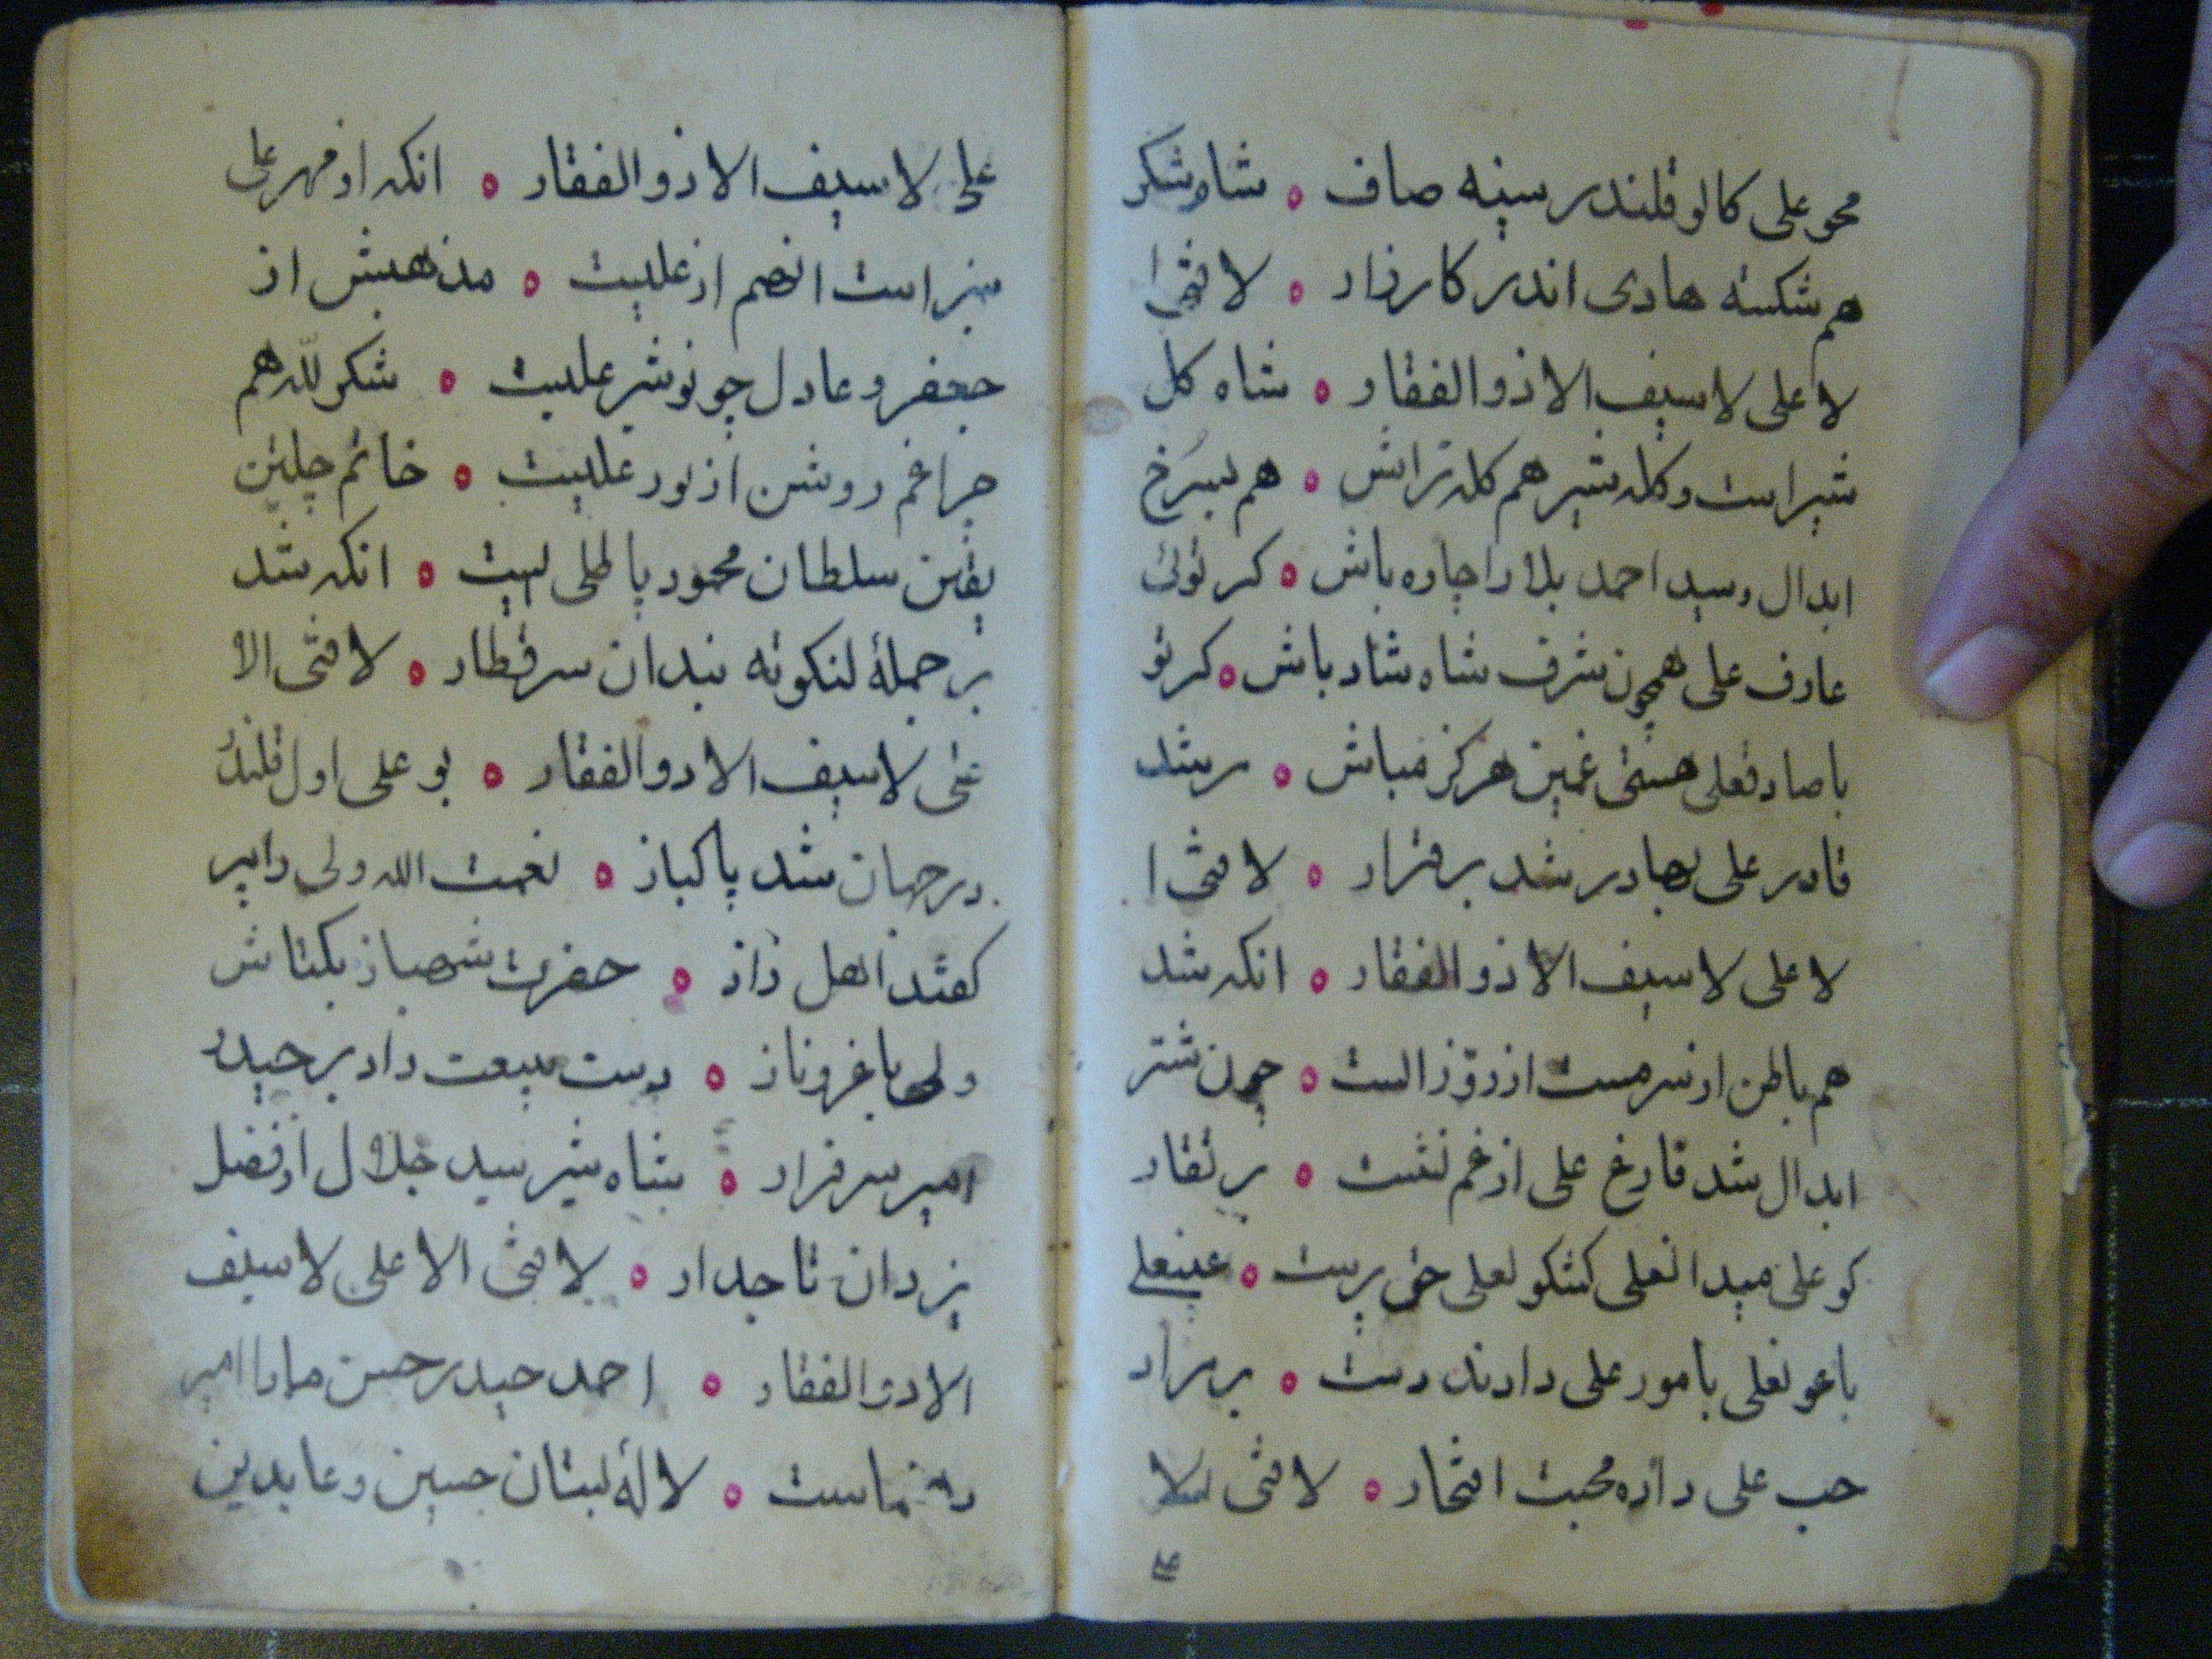 محو علی کالو قلندر سینه صاف ه شاه شکر
هم شکسته هادی اندر کارزار ه لا فتی ا
لا علی لا سیف الا ذو الفقار ه شاه کل
شیر است و کله شیر هم کله تراش ه هم سرخ
ابدال و سید احمد بلا را چاره باش ه کر توئی
عارف علی همچون شرف شاه شاد باش ه کر تو
با صادقعلی هستی غمین هرکز مباش ه مرشد
قادر علی بهادر شد برقرار ه لا فتی ا
لا علی لا سیف الا ذو الفقار ه انکه شد
هم باطن او سرمست از روز الست ه چون شتر
ابدال شد فارغ علی از غم نشست ه
کو علی میدانعلی کشکولعلی حق پرست ه عینعلی
با عونعلی با مور علی دارند دست ه بر مراد
حب علی داده محبت افتخار ه لا فتی الا
علی لا سیف الا ذو الفقار ه انکه او مهر علی
است ازعلیت ه مذهبش از
جعفر و عادل چو نوشر علیت ه شکر لله هم
چراغم روشن از نور علیت ه خاتم
یقین سلطان محمود پاطلی ه انکه شد
بر جملهٔ لنکوته بندان سر قطار ه لا فتی الا
علی لا سیف الا ذو الفقار ه بو علی اول قلندر
در جهان شد پاکباز ه نعمت الله ولی را پیر
کفتند اهل راز ه حضرت شهباز بکتاش
ولی با غر و ناز ه دست بیعت داد بر حیدر
امیر سرفراز ه شاه شیر سید جلال از فضل
یزدان تاجدار ه لا فتی الا علی لا سیف
الا ذو الفقار ه احمد حیدر حسن ما را امیر
رهنماست ه لالهٔ بستان حسین و عابدین